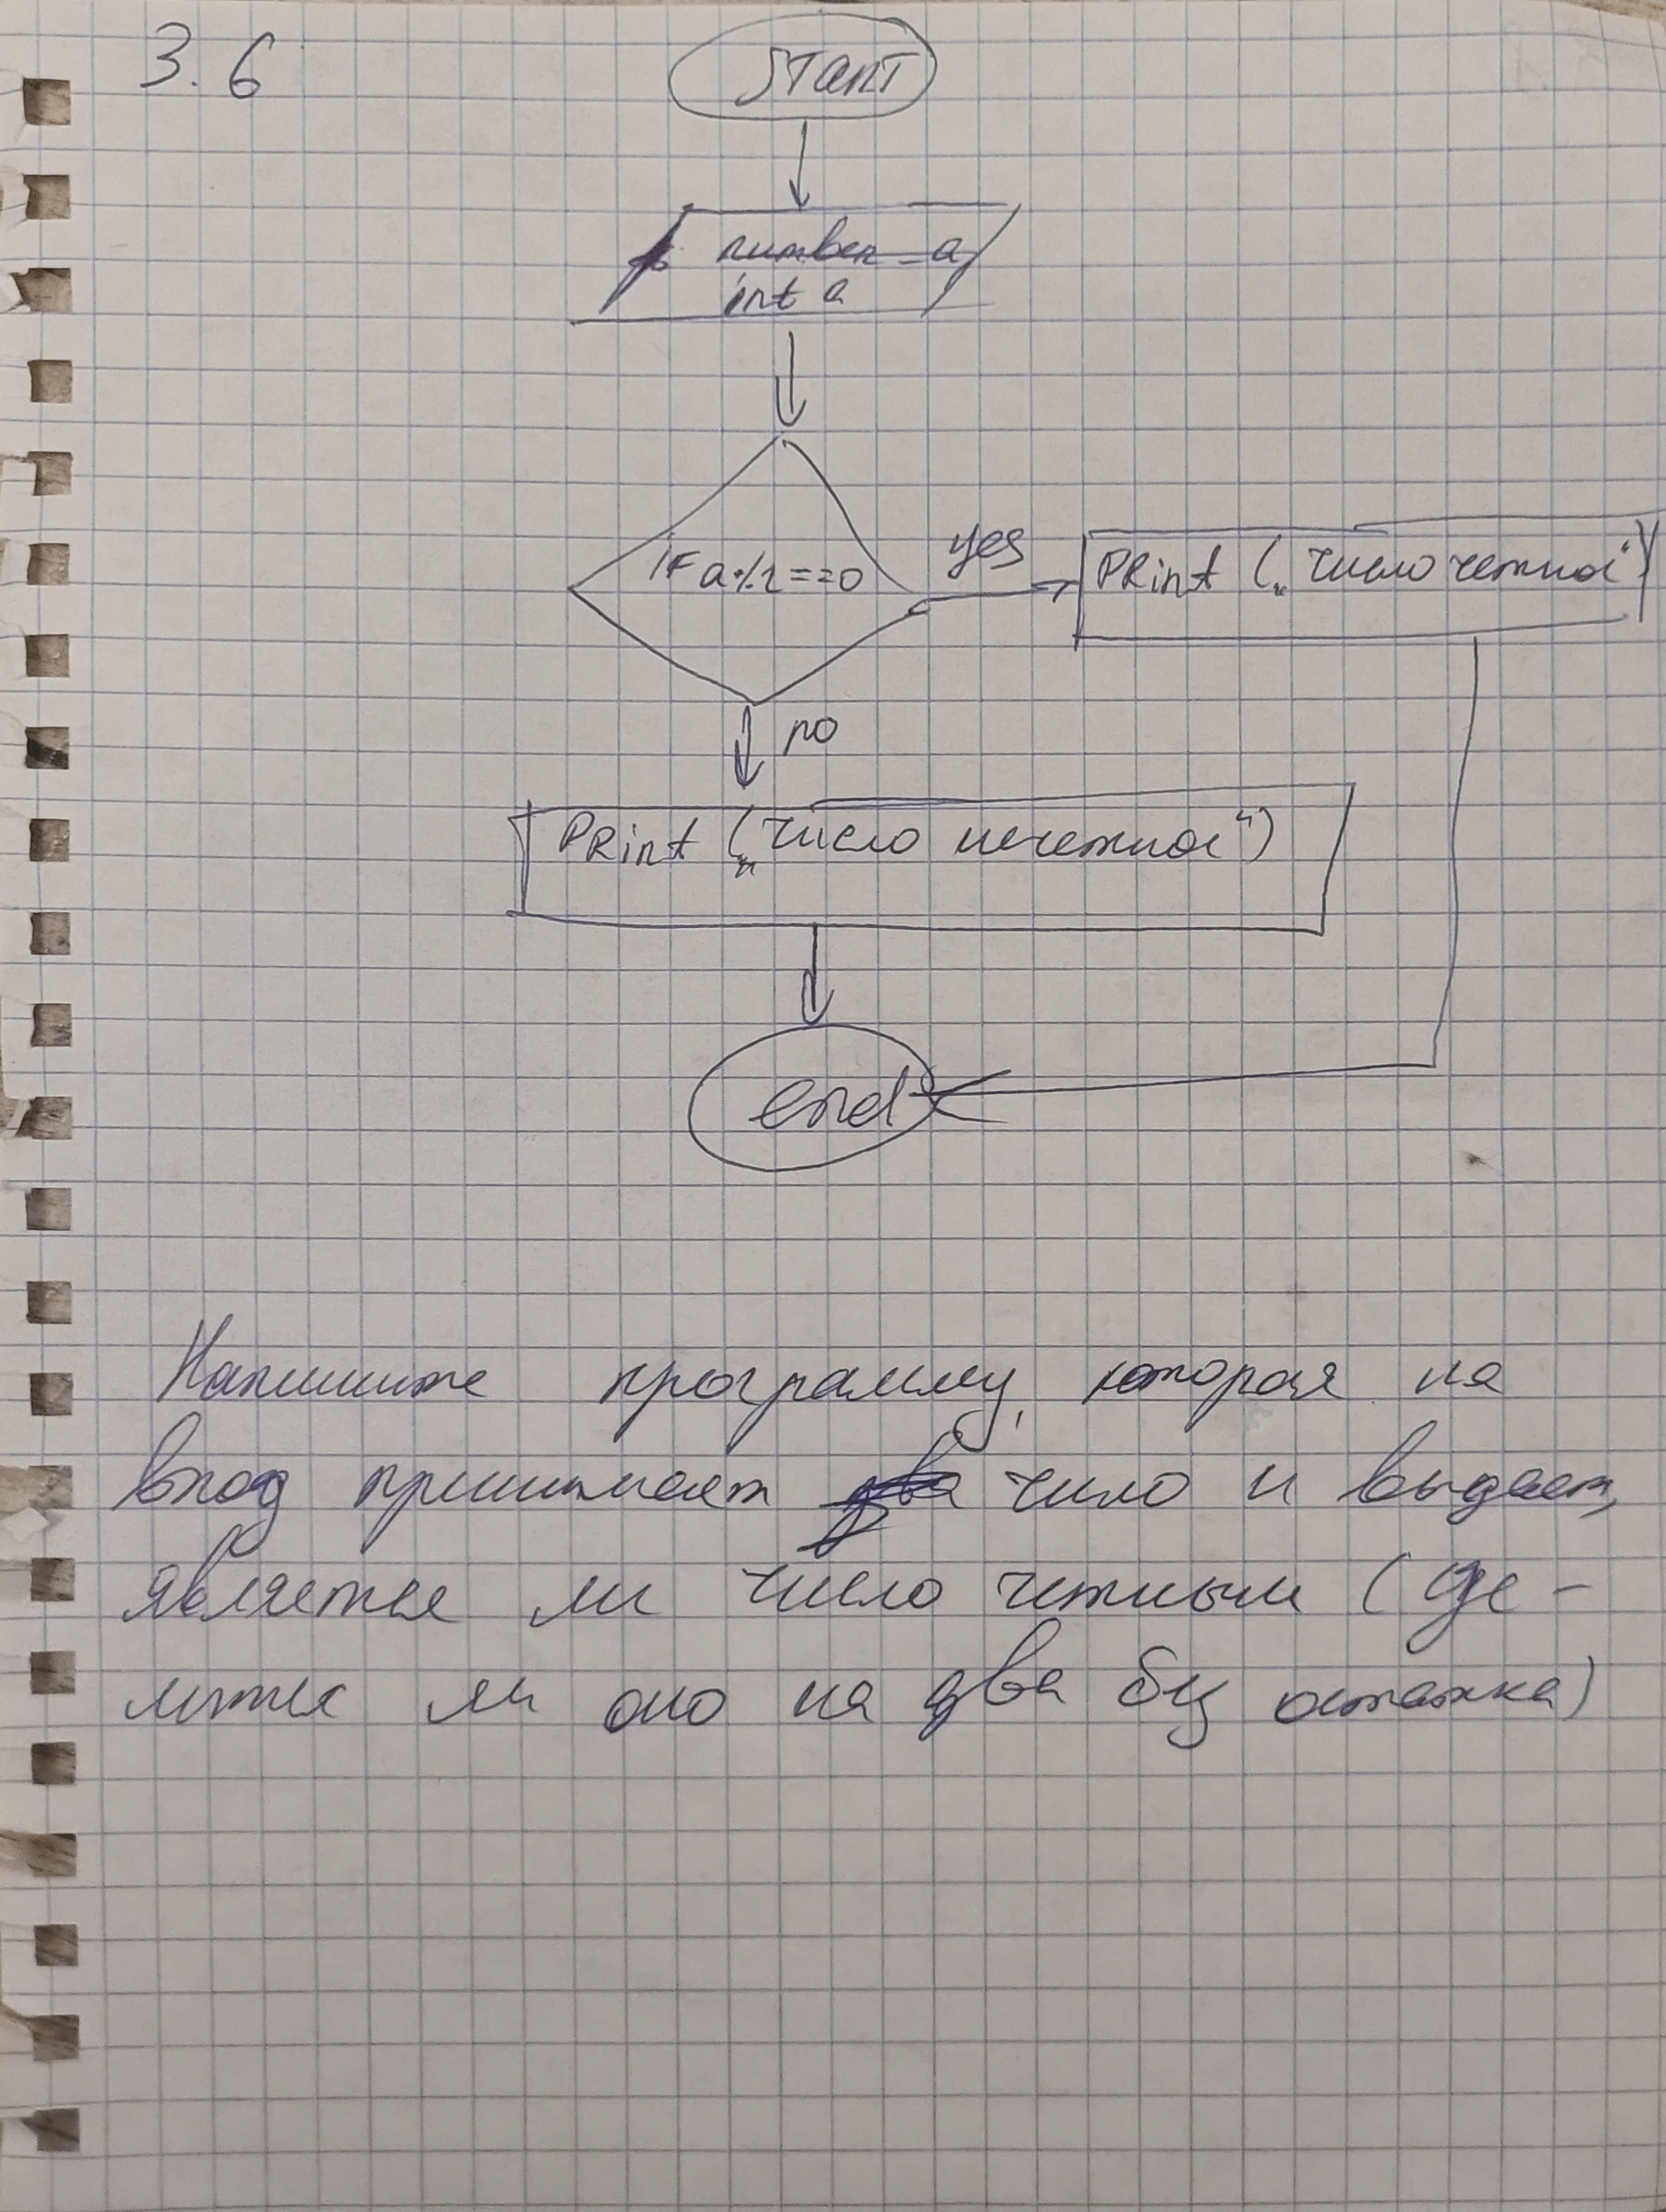 3.6
START
number a
int a
if a%2==0
yes
Print („число четное“)
no
Print („число нечетное“)
end
Напишите программу, которая на
вход принимает число и выдает,
является ли число четным (де-
лится ли оно на два без остатка)